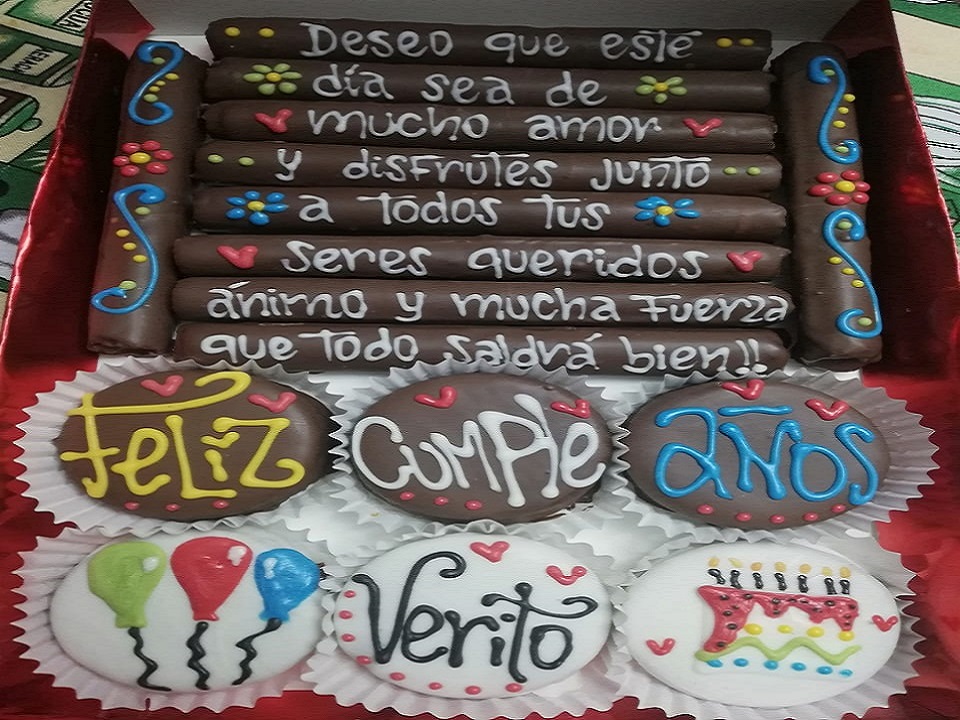 Deseo que esté
día sea de
mucho amor
y disfrutes junto
a todos tus
seres queridos
ánimo y mucha fuerza
que todo saldrá bien!!
Feliz
Cumple
años
Verito